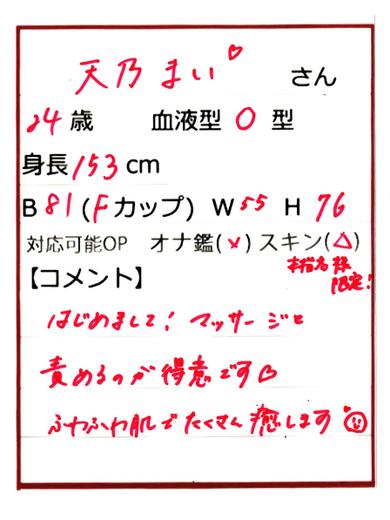 天乃 まい♡ さん
24 歳 血液型 O 型
身長 153 cm
B 81 (Fカップ) W 55 H 76
対応可能OP オナ鑑(×) スキン(△)
様限定!
【コメント】
はじめまして! マッサージと
責めるのが得意です♡
ふわふわ肌でたくさん癒します